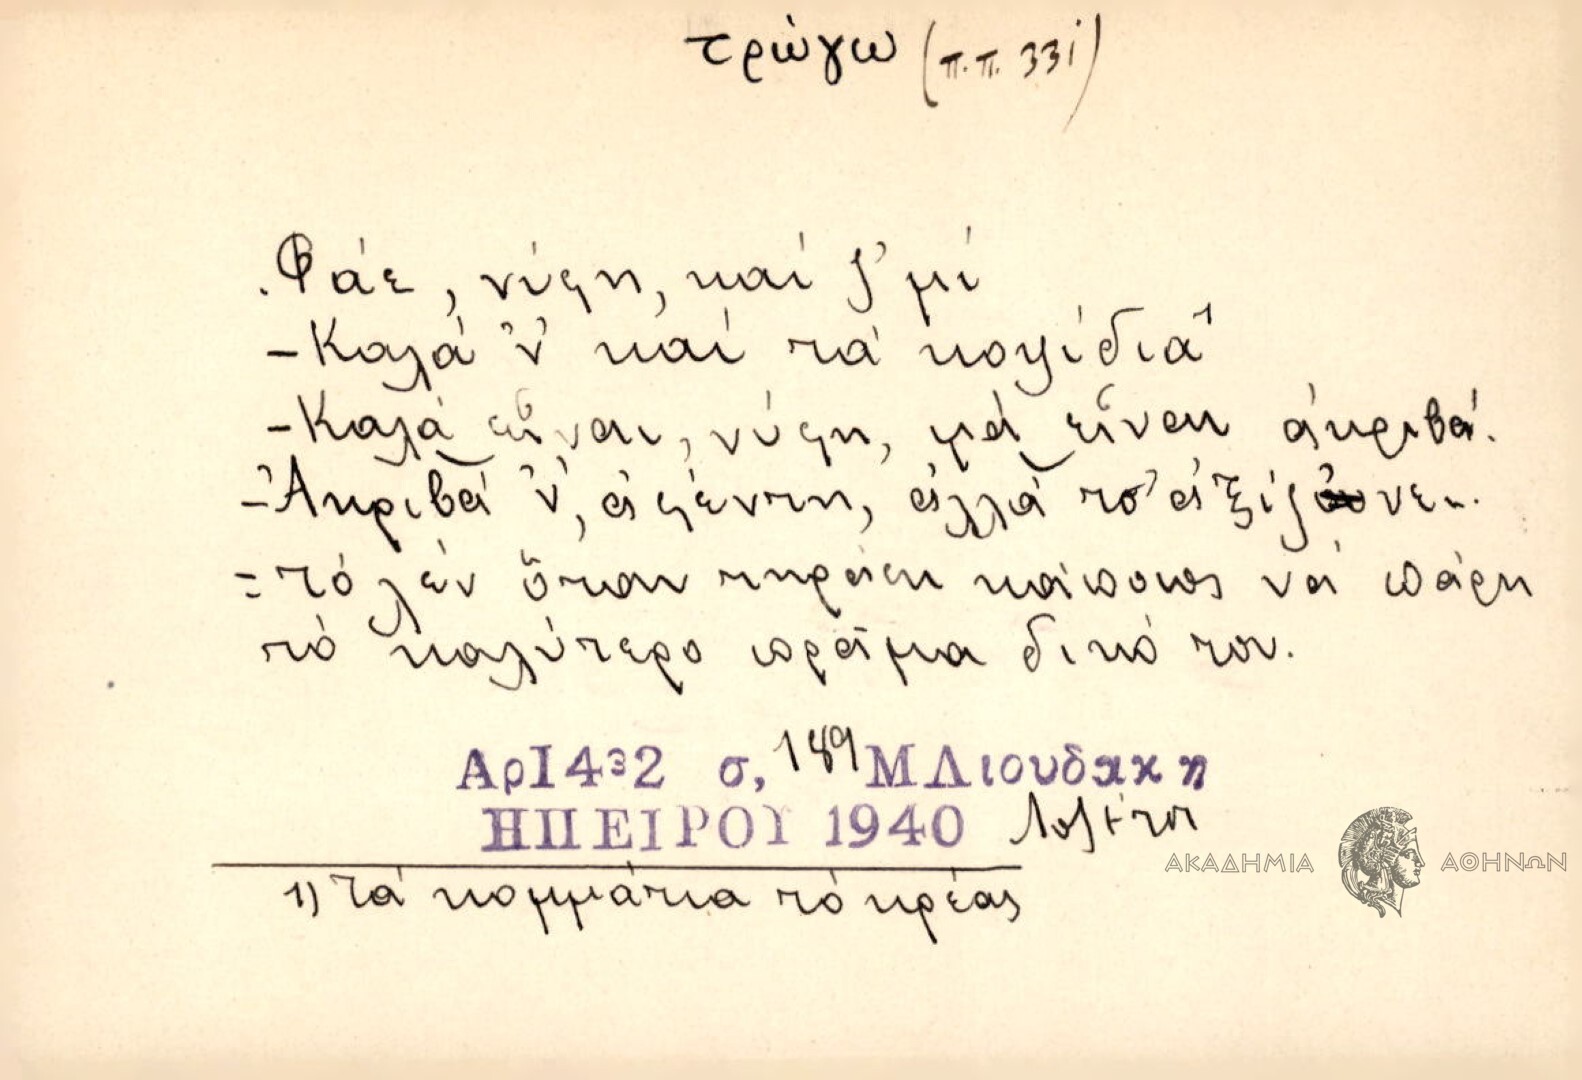 τρώγω (π.π. 331)
.Φάε, νύφη, καί ζ'μί
-Καλά 'ν' καί τά κοψίδια¹
-Καλά εἶναι, νύφη, μά εἶναι ἀκριβά.
-Ἀκριβά 'ν', ἀφέντη, ἀλλά τσ' ἀξίζουνε..
= τό λέν ὅταν τηράει κάποιος νά πάρη
τό καλύτερο πρᾶμα δικό του.
Αρ1432 σ, 189 Μ Λιουδακη
ΗΠΕΙΡΟΥ 1940
1) Τά κομμάτια τό κρέας
ΑΚΑΔΗΜΙΑ ΑΘΗΝΩΝ